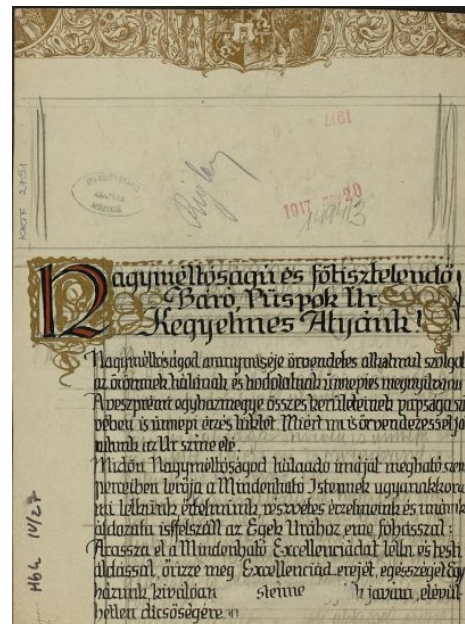 1917
1917 20
KRTF 2751
Nagyméltóságú és főtisztelendő
Báró, Püspök Úr
Kegyelmes Atyánk!
Nagyméltóságod aranymiséje örvendetes alkalmul szolgál
az örömnek hálának és hódolatnak ünnepies
A veszprémi egyházmegye összes kerületeinek papsága
vében is ünnepi érzés lüktet. Miért mi is örvendezéssel
Úr színe elé.
Midőn Nagyméltóságod hálaadó imáját megható
perceiben lerója a Mindenható Istennek ugyanakkor
mi lelkünk, értelmünk, részvétes érzelmeink és imánk
áldozata is felszáll az Egek Urához eme fohásszal:
Árassza el a Mindenható Excellenciádat lelki és testi
áldással, őrizze meg Excellenciád erejét, egészségét
házunk kiválóan javára,
hetlen dicsőségére